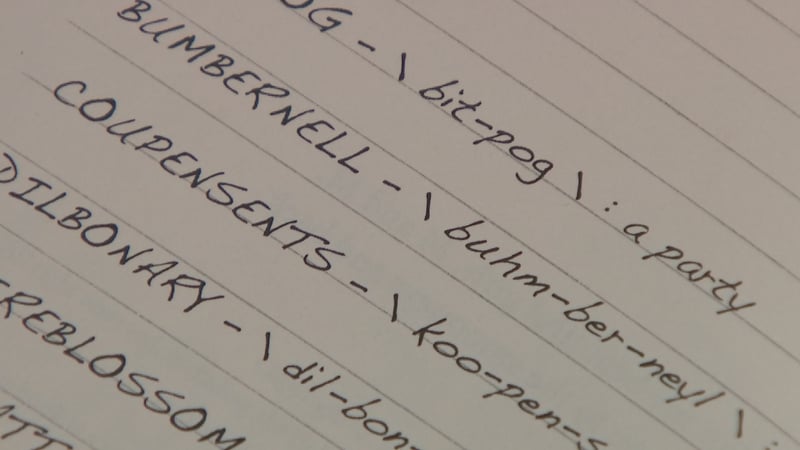 OG - \ bit-pog \ : a party
BUMBERNELL - \ buhm-ber-neyl \ :
COUPENSENTS - \ koo-pen-s
DILBONARY - \ dil-bon-
REBLOSSOM
ATT